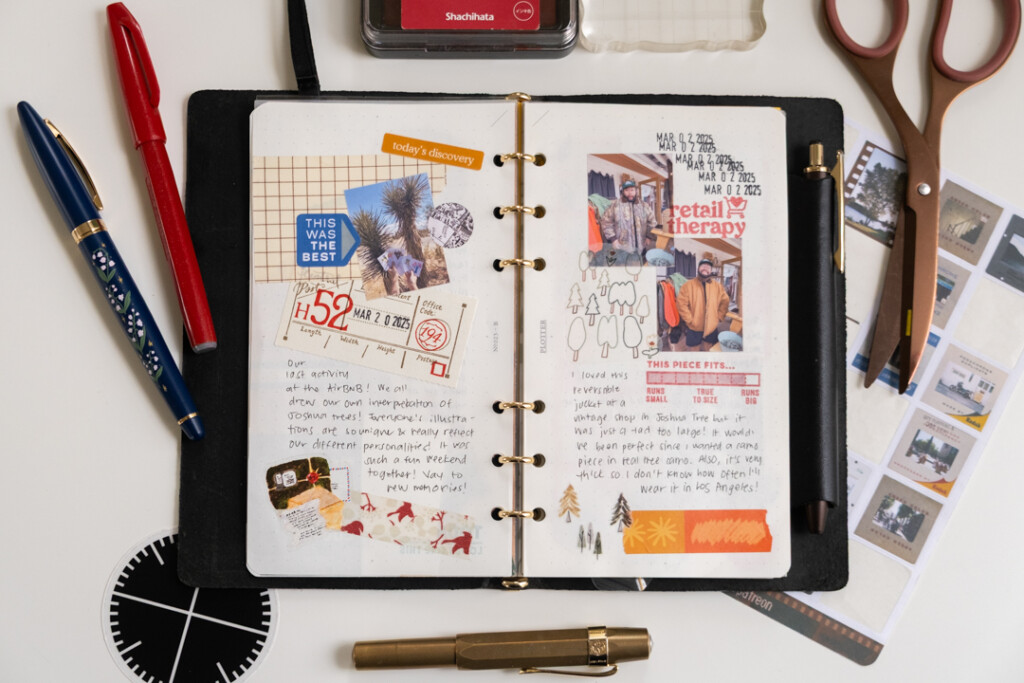 Shachihata
today's discovery
THIS
WAS
THE
BEST
Office
Code:
H52
MAR 2 0 2025
194
Length
Width
Height
Our
last activity
at the AirBNB! We all
drew our own interpretation of
Joshua trees! Everyone's illustra-
tions are so unique & really reflect
our different personalities! It was
such a fun weekend
together! Yay to
new memories!
PLOTTER
MAR 0 2 2025
MAR 0 2 2025
MAR 0 2 2025
MAR 0 2 2025
MAR 0 2 2025
retail
therapy
THIS PIECE FITS...
RUNS SMALL
TRUE TO SIZE
RUNS BIG
I loved this
reversible
jacket at a
vintage shop in Joshua Tree but it
was just a tad too large! It would've
been perfect since I wanted a camo
piece in real tree camo. Also, it's very
thick so I don't know how often I'll
wear it in Los Angeles!